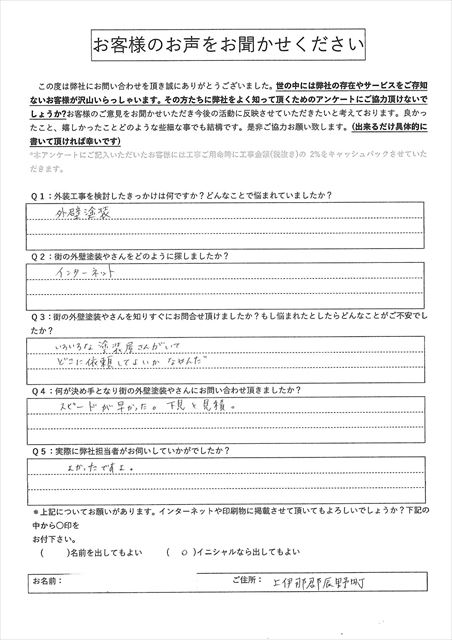 お客様のお声をお聞かせください
この度は弊社にお問い合わせを頂き誠にありがとうございました。世の中には弊社の存在やサービスをご存知
ないお客様が沢山いらっしゃいます。その方たちに弊社をよく知って頂くためのアンケートにご協力頂けないで
しょうか?お客様のご意見をお聞かせいただき今後の活動に反映させていただきたいと考えております。良かっ
たこと、嬉しかったことどのような些細な事でも結構です。是非ご協力お願い致します。(出来るだけ具体的に
書いて頂ければ幸いです)
*本アンケートにご記入いただいたお客様には工事ご用命時に工事金額(税抜き)の 2%をキャッシュバックさせていた
だきます。
Q1:外装工事を検討したきっかけは何ですか?どんなことで悩まれていましたか?
外壁塗装
Q2:街の外壁塗装やさんをどのように探しましたか?
インターネット
Q3:街の外壁塗装やさんを知りすぐにお問合せ頂けましたか?もし悩まれたとしたらどんなことがご不安でし
たか?
いろいろな塗装屋さんがいて
どこに依頼してよいかなやんだ
Q4:何が決め手となり街の外壁塗装やさんにお問い合わせ頂きましたか?
スピードが早かった。下見と見積。
Q5:実際に弊社担当者がお伺いしていかがでしたか?
よかったですよ。
*上記についてお願いがあります。インターネットや印刷物に掲載させて頂いてもよろしいでしょうか?下記の
中から〇印を
お付下さい。
( )名前を出してもよい (○)イニシャルなら出してもよい
お名前: ご住所: 上伊那郡辰野町